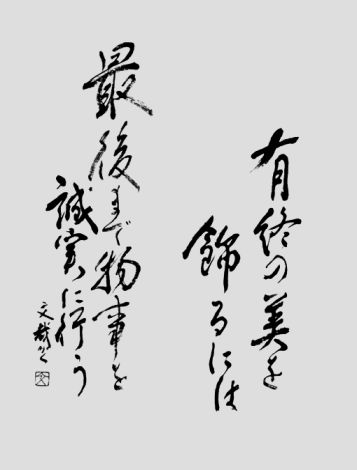 有終の美を
飾るには
最後まで物事を
誠実に行う